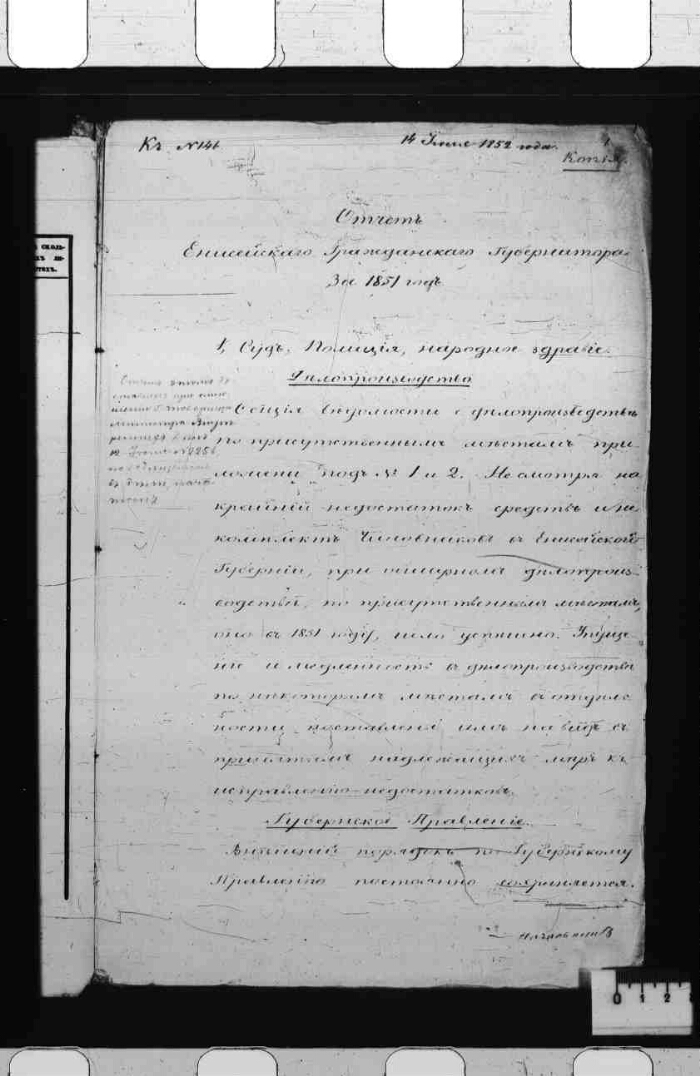 Къ №141
14 Июня 1852 года.
Копія.
Отчетъ
Енисейскаго Гражданскаго Губернатора
За 1851 годъ
1, Судъ, Полиція, народное здравіе.
Дѣлопроизводство
Общія вѣдомости о дѣлопроизводствѣ
по присутственнымъ мѣстамъ при
ложены подъ № 1 и 2. Не смотря на
крайній недостатокъ средствъ и не
комплектъ Чиновниковъ въ Енисейской
Губерніи, при обширномъ дѣлопроиз
водствѣ, по присутственнымъ мѣстамъ,
оно въ 1851 году, шло успѣшно. Упуще
нія и медленность въ дѣлопроизводствѣ
по нѣкоторымъ мѣстамъ въ отдѣль
ности, поставлены имъ на видъ съ
принятіемъ надлежащихъ мѣръ къ
исправленію недостатковъ.
Губернское Правленіе.
Внѣшній порядокъ по Губернскому
Правленію постоянно сохраняется.